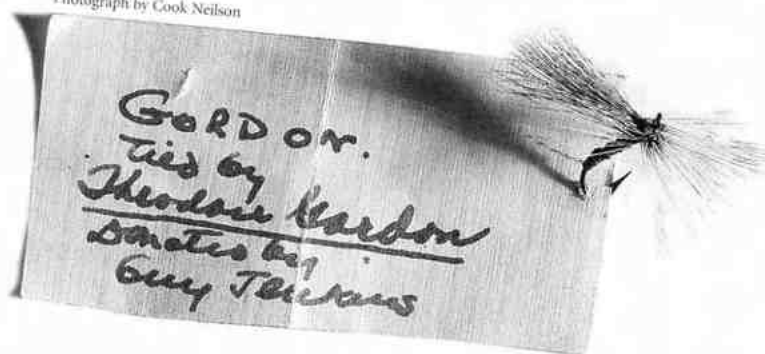 Photograph by Cook Neilson
GORDON.
Tied by
Theodore Gordon
Donated by
Guy Jenkins